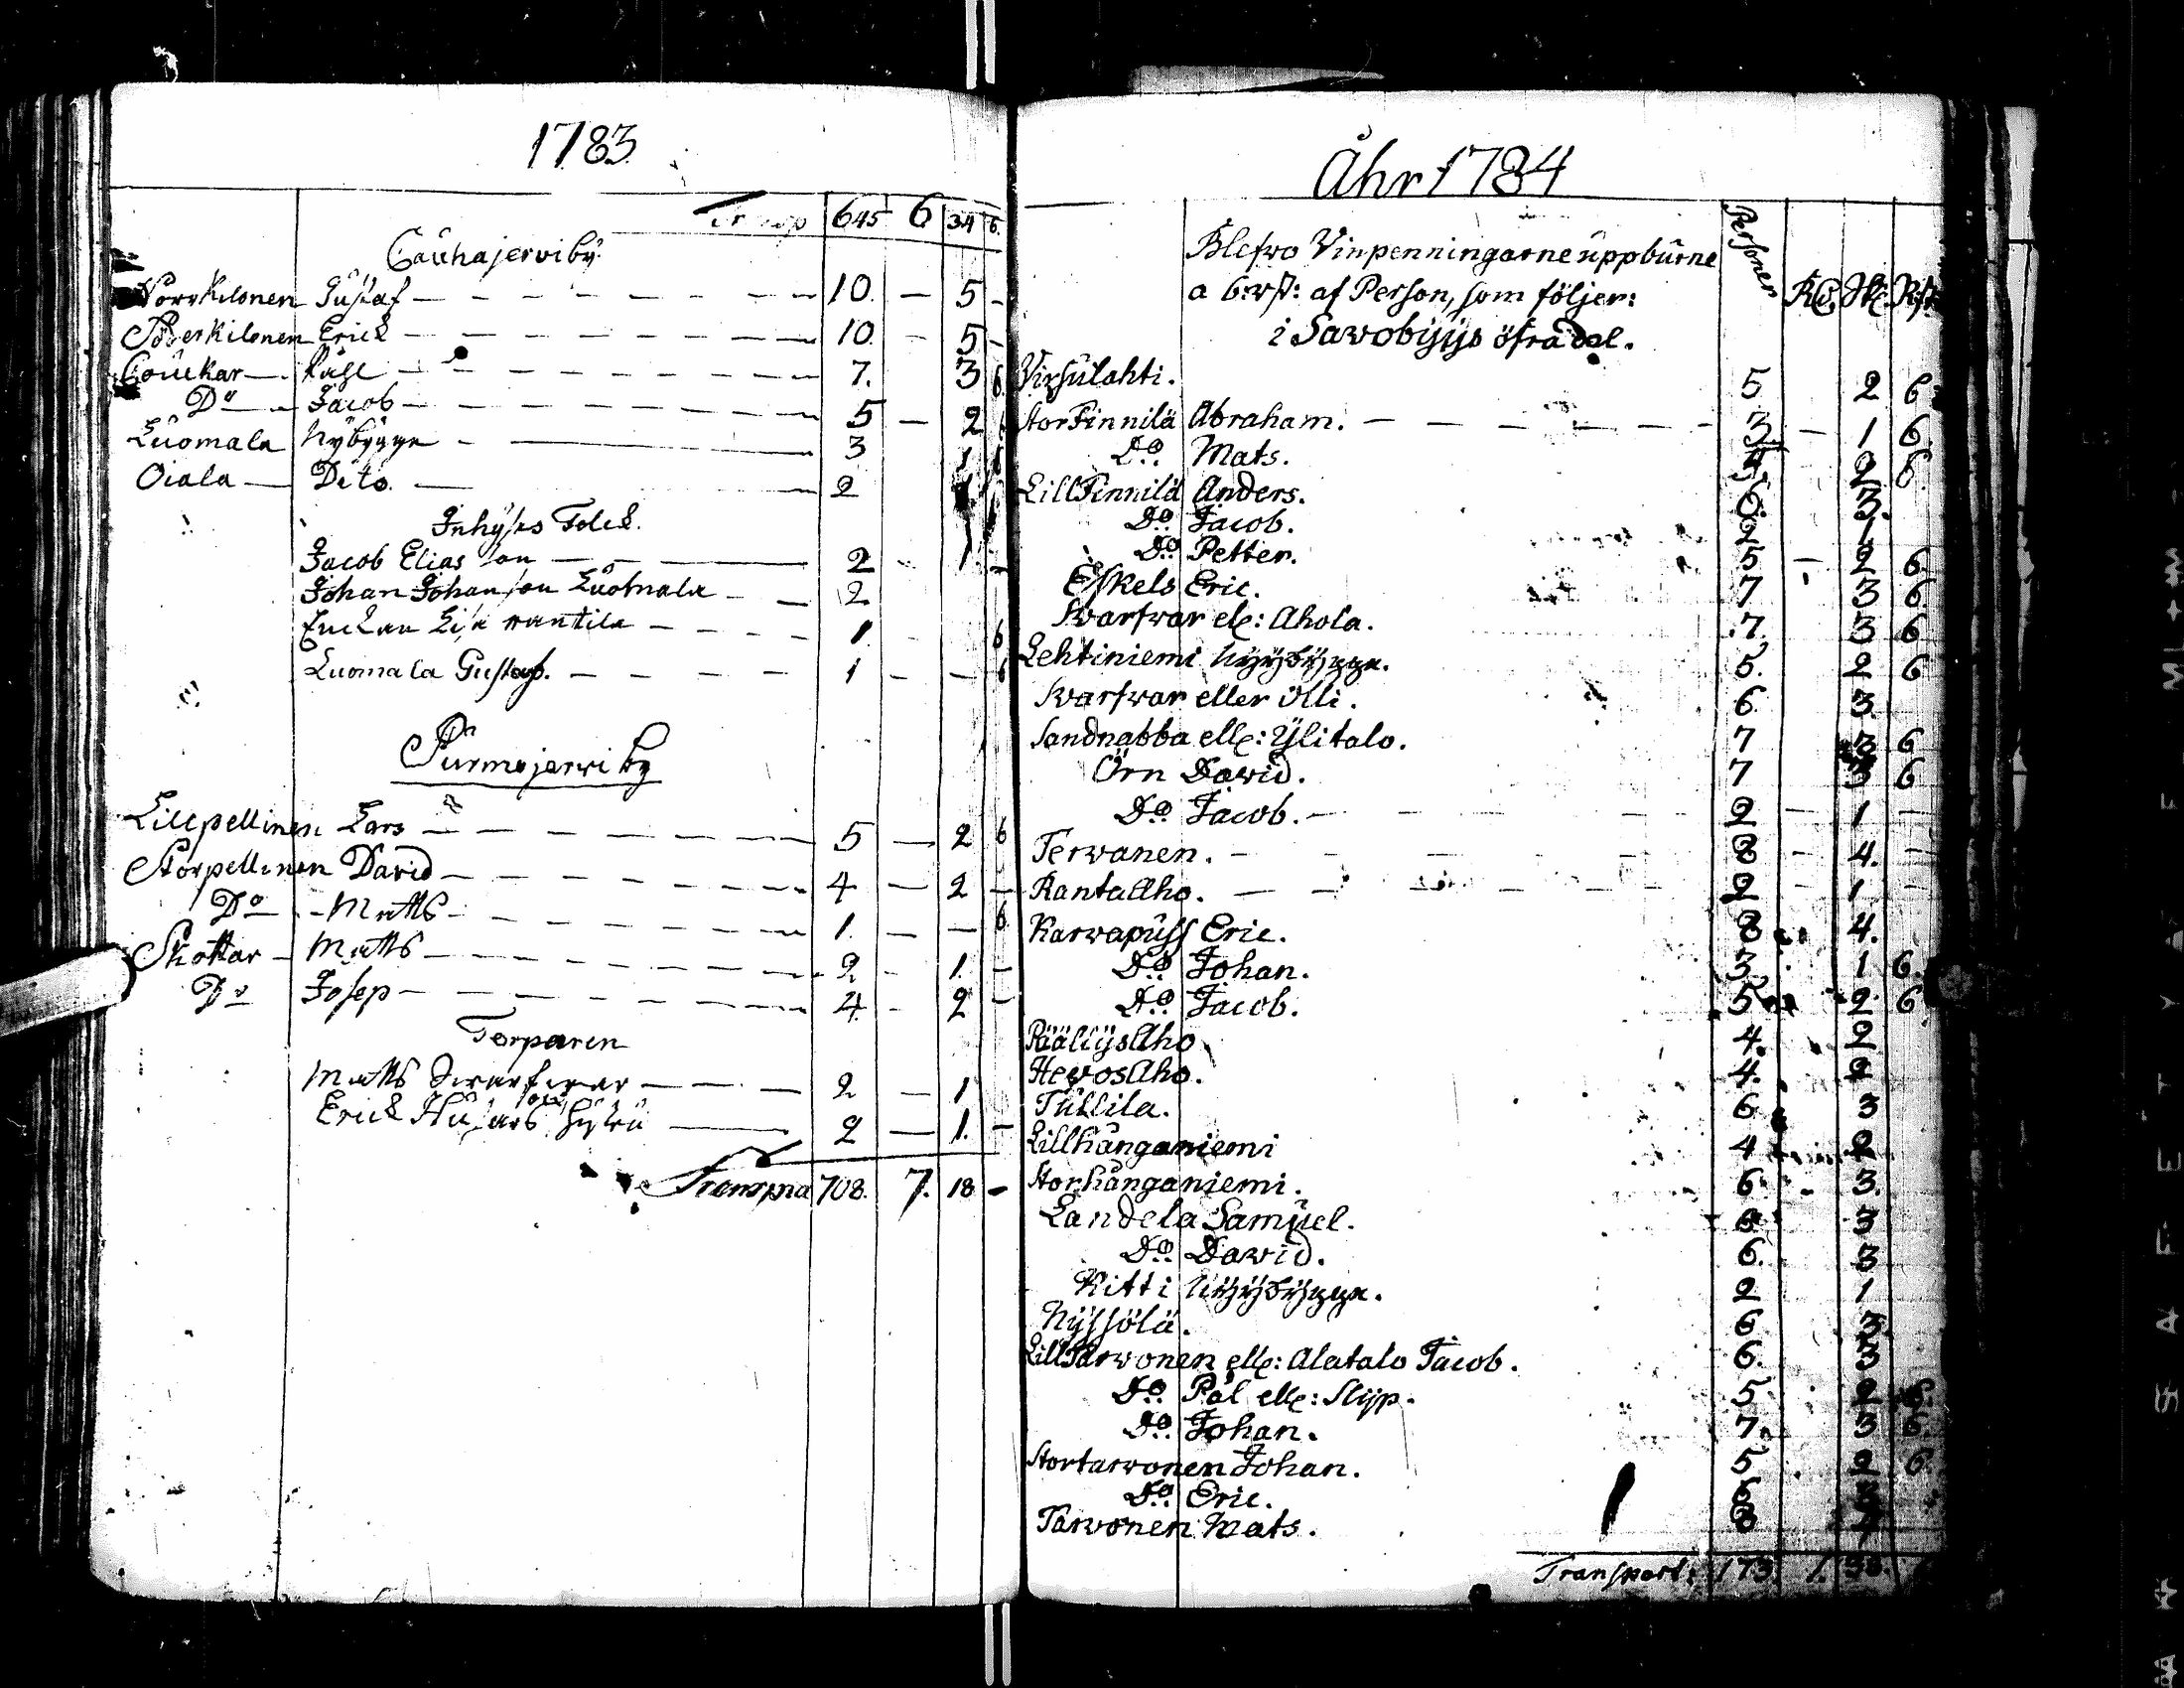 1783
Transp 645 6 34 6.
Cauhajerviby
Norrkilonen Gustaf — 10. — 5 —
Söderkilonen Erick — 10. — 5 —
Couckar — Påhl — 7. 3 6
Do — Jacob — 5 — 2 6
Luomala Nybygge — 3 1 6
Oiala — Dito. — 2 1
Inhyses Folck.
Jacob Elias son — 2 — 1. —
Johan Johansson Luomala — 2
Enckan Lisa Rantila — 1. 6
Luomala Gustaf. — 1 — — 6
Purmojerwi by
Lillpellinen Lars — 5 — 2 6
Storpellinen David — 4 — 2 —
Do — Matts — 1. — — 6
Skottar — Matts — 2 — 1. —
Do Josep — 4. — 2 —
Torparen
Matts Swarfwar — 2 — 1
Erick Husars — 2 — 1. —
708. 7. 18 —
Åhr 1784
Blefwo Vinpenningarne uppburne
a 6 rst: af Person, som följer:
i Savobyys öfra del.
Personer Rd. Sk. Rst.
Virsulahti. 5 2 6
StorFinnilä Abraham. — 3 — 1 6.
Do. Mats. 5 2 6.
LillFinnilä Anders. 6. 3.
Do. Jacob. 2 1
Do. Petter. 5 — 2 6.
Eskels Eric. 7 3 6.
Swarfwar ell: Ahola. 7. 3 6
Lehtiniemi Nyybygge. 5. 2 6
Swarfwar eller Olli. 6 3.
Sandnabba ell: Ylitalo. 7 3 6
Örn David. 7 3 6
Do. Jacob. — 2 — 1 —
Terwanen. — 8 — 4. —
RantaAho. — 2 — 1 —
Karwapuss Eric. 8 4.
Do. Johan. 3. 1 6.
Do. Jacob. 5 2 6
PäällysAho 4. 2
HevosAho. 4. 2
Tullila. 6 3
Lillhånganiemi 4 2
Storhånganiemi. 6 3.
Landela Samuel. 6 3
Do. David. 6. 3
Kitti Nyybygge. 2 1
Nyssölä. 6 3
LillTarvonen ell: Alatalo Jacob. 6. 3
Do. Pål ell: Slyp. 5 2 6.
Do. Johan. 7. 3 6.
Stortarvonen Johan. 5 2 6.
Do. Eric. 6 3
Tarvonen Mats. 8 4
Transport: 173. 1. 38.